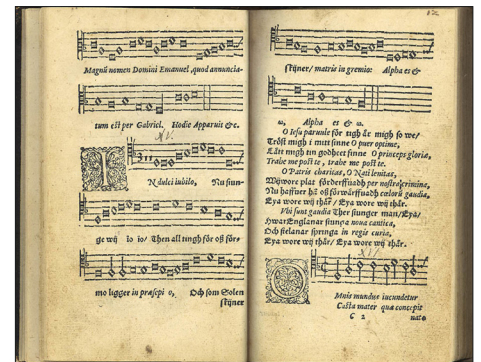 Magnū nomen Domini Emanuel, quod annuncia-
tum est per Gabriel. Hodie Apparuit &c.
XV.
IN dulci iubilo, Nu siun-
ge wij io io/ Then all tingh för oß för-
mo ligger in præsepi o, Och som Solen
skijner
12
skijner/ matris in gremio: Alpha es &
ω, Alpha es & ω.
O Iesu paruule för tigh är migh so we/
Tröst migh i mitt sinne O puer optime,
Lätt migh tin godheet finne O princeps gloriæ,
Trahe me post te, trahe me post te.
O Patris charitas, O Nati lenitas,
Wij wore plat förderffuadh per nostra crimina,
Nu haffuer hā oß förwärffuadh cœlorū gaudia,
Eya wore wij thär/ Eya wore wij thär.
Vbi sunt gaudia Ther siunger man/ Eya/
Hwar Englanar siunga noua cantica,
Och sielanar springa in regis curia,
Eya wore wij thär/ Eya wore wij thär.
XVI.
OMnis mundus iucundetur
Casta mater quæ concepit
C 2 nato